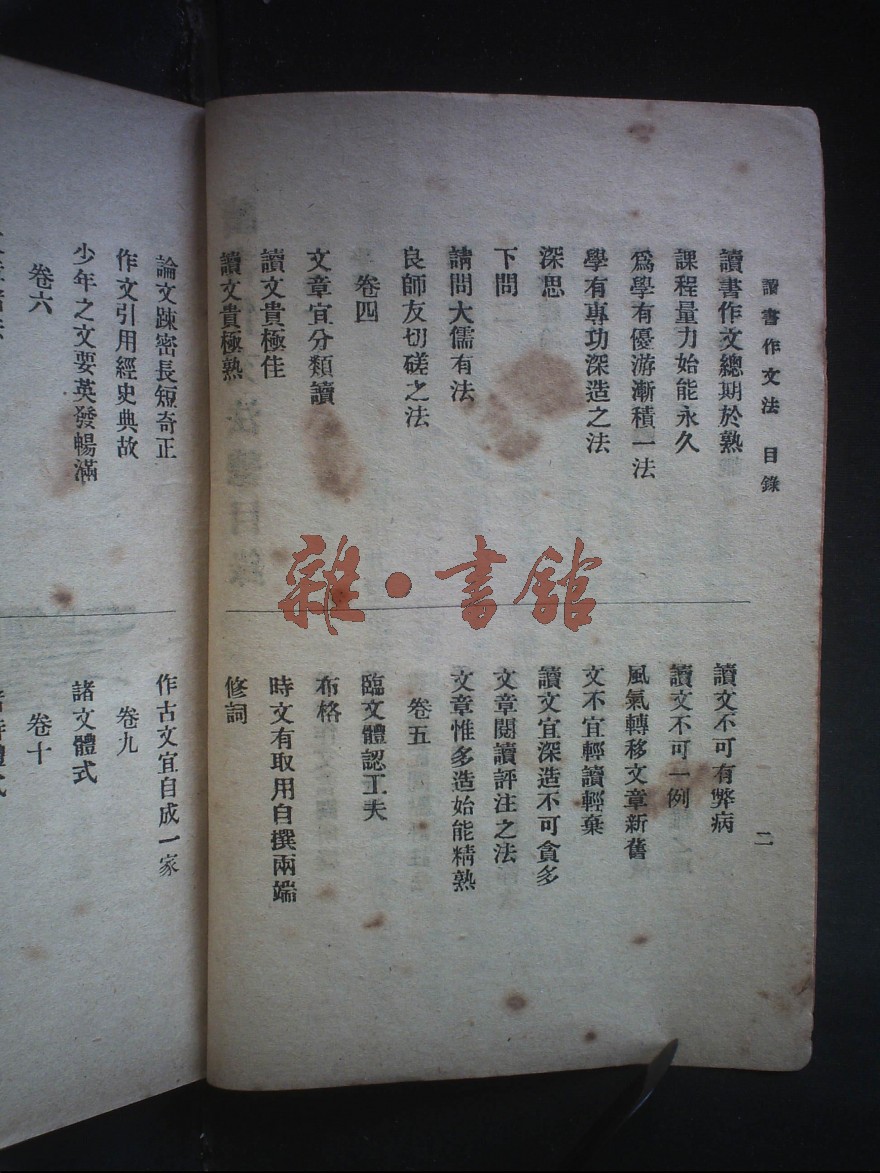 讀書作文法 目錄
二
讀書作文總期於熟
課程量力始能永久
爲學有優游漸積一法
學有專功深造之法
深思
下問
請問大儒有法
良師友切磋之法
卷四
文章宜分類讀
讀文貴極佳
讀文貴極熟
讀文不可有弊病
讀文不可一例
風氣轉移文章新舊
文不宜輕讀輕棄
讀文宜深造不可貪多
文章閱讀評注之法
文章惟多造始能精熟
卷五
臨文體認工夫
布格
時文有取用自撰兩端
修詞
論文踈密長短奇正
作文引用經史典故
少年之文要英發暢滿
卷六
作古文宜自成一家
卷九
諸文體式
卷十
雜·書館